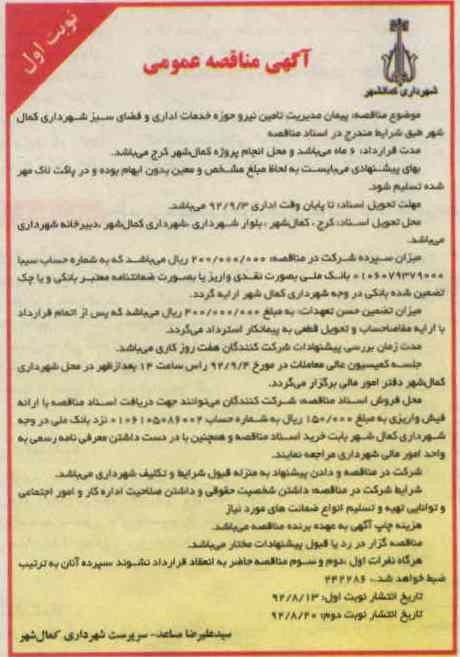 نوبت اول
شهرداری کمالشهر
آگهی مناقصه عمومی
موضوع مناقصه: پیمان مدیریت تامین نیرو حوزه خدمات اداری و فضای سبز شهرداری کمال
شهر طبق شرایط مندرج در اسناد مناقصه
مدت قرارداد: ۶ ماه می‌باشد و محل انجام پروژه کمال‌شهر کرج می‌باشد.
بهای پیشنهادی می‌بایست به لحاظ مبلغ مشخص و معین بدون ابهام بوده و در پاکت لاک مهر
شده تسلیم شود.
مهلت تحویل اسناد: تا پایان وقت اداری ۹۲/۹/۳ می‌باشد.
محل تحویل اسناد: کرج ، کمال‌شهر ، بلوار شهرداری ،شهرداری کمال‌شهر ،دبیرخانه شهرداری
می‌باشد.
میزان سپرده شرکت در مناقصه: ۲۰۰/۰۰۰/۰۰۰ ریال می‌باشد که به شماره حساب سیبا
۰۱۰۶۰۷۹۳۷۹۰۰۰ بانک ملی بصورت نقدی واریز یا بصورت ضمانتنامه معتبر بانکی و یا چک
تضمین شده بانکی در وجه شهرداری کمال شهر ارایه گردد.
میزان تضمین حسن تعهدات: به مبلغ ۴۰۰/۰۰۰/۰۰۰ ریال می‌باشد که پس از اتمام قرارداد
با ارایه مفاصاحساب و تحویل قطعی به پیمانکار استرداد می‌گردد.
مدت زمان بررسی پیشنهادات شرکت کنندگان هفت روز کاری می‌باشد.
جلسه کمیسیون عالی معاملات در مورخ ۹۲/۹/۴ راس ساعت ۱۴ بعدازظهر در محل شهرداری
کمال‌شهر دفتر امور مالی برگزار می‌گردد.
محل فروش اسناد مناقصه: شرکت کنندگان می‌توانند جهت دریافت اسناد مناقصه با ارائه
فیش واریزی به مبلغ ۱۵۰/۰۰۰ ریال به شماره حساب ۰۱۰۶۱۰۵۰۸۶۰۰۲ نزد بانک ملی در وجه
شهرداری کمال شهر بابت خرید اسناد مناقصه و همچنین با در دست داشتن معرفی نامه رسمی به
واحد امور مالی شهرداری مراجعه نمایند.
شرکت در مناقصه و دادن پیشنهاد به منزله قبول شرایط و تکلیف شهرداری می‌باشد.
شرایط شرکت در مناقصه: داشتن شخصیت حقوقی و داشتن صلاحیت اداره کار و امور اجتماعی
و توانایی تهیه و تسلیم انواع ضمانت های مورد نیاز
هزینه چاپ آگهی به عهده برنده مناقصه می‌باشد.
مناقصه گزار در رد یا قبول پیشنهادات مختار می‌باشد.
هرگاه نفرات اول ،دوم و سوم مناقصه حاضر به انعقاد قرارداد نشوند ،سپرده آنان به ترتیب
ضبط خواهد شد.، ۲۴۲۲۸۶
تاریخ انتشار نوبت اول: ۹۲/۸/۱۳
تاریخ انتشار نوبت دوم: ۹۲/۸/۲۰
سیدعلیرضا مساعد- سرپرست شهرداری کمال‌شهر